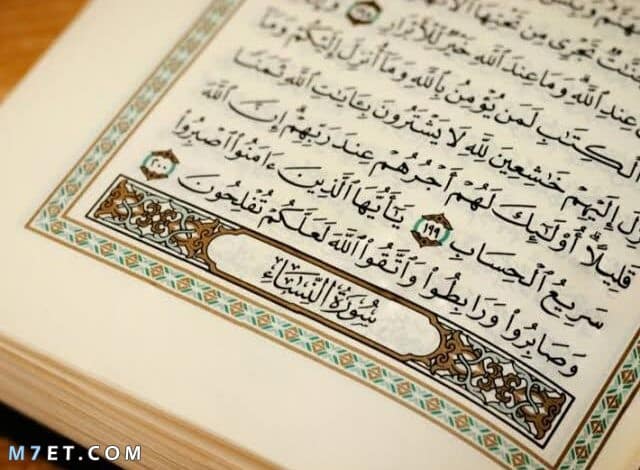 تَجْرِى مِن تَحْتِهَا
عِندِ ٱللَّهِ وَمَا عِندَ ٱللَّهِ خَيْرٌ لِّلْأَبْرَارِ
ٱلْكِتَٰبِ لَمَن يُؤْمِنُ بِٱللَّهِ وَمَآ أُنزِلَ إِلَيْكُمْ وَمَآ
إِلَيْهِمْ خَٰشِعِينَ لِلَّهِ لَا يَشْتَرُونَ بِـَٔايَٰتِ ٱللَّهِ ثَمَنًا
قَلِيلًا أُو۟لَٰٓئِكَ لَهُمْ أَجْرُهُمْ عِندَ رَبِّهِمْ إِنَّ ٱللَّهَ
سَرِيعُ ٱلْحِسَابِ ١٩٩ يَٰٓأَيُّهَا ٱلَّذِينَ ءَامَنُوا۟ ٱصْبِرُوا۟
وَصَابِرُوا۟ وَرَابِطُوا۟ وَٱتَّقُوا۟ ٱللَّهَ لَعَلَّكُمْ تُفْلِحُونَ ٢٠٠
سُورَةُ النِّسَاءِ
M7ET.COM